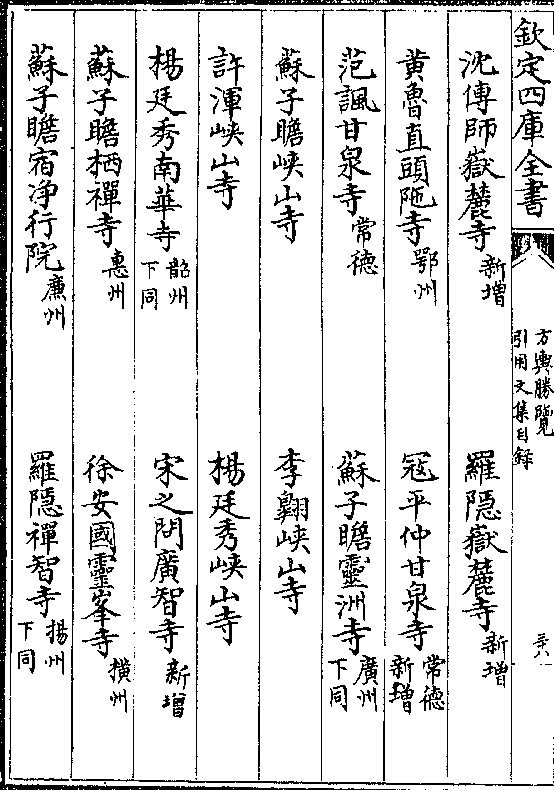 欽定四庫全書
方輿勝覽
引用文集目録
三六
沈傳師嶽麓寺 新増
羅隠嶽麓寺 新増
黄魯直頭陁寺 鄂州
冦平仲甘泉寺 常德 新增
范諷甘泉寺 常德
蘇子瞻靈洲寺 廣州 下同
蘇子瞻峽山寺
李翺峽山寺
許渾峡山寺
楊廷秀峽山寺
楊廷秀南華寺 韶州 下同
宋之問廣智寺 新增
蘇子瞻栖禪寺 惠州
徐安國靈峯寺 横州
蘇子瞻宿浄行院 廉州
羅隠禪智寺 揚州 下同